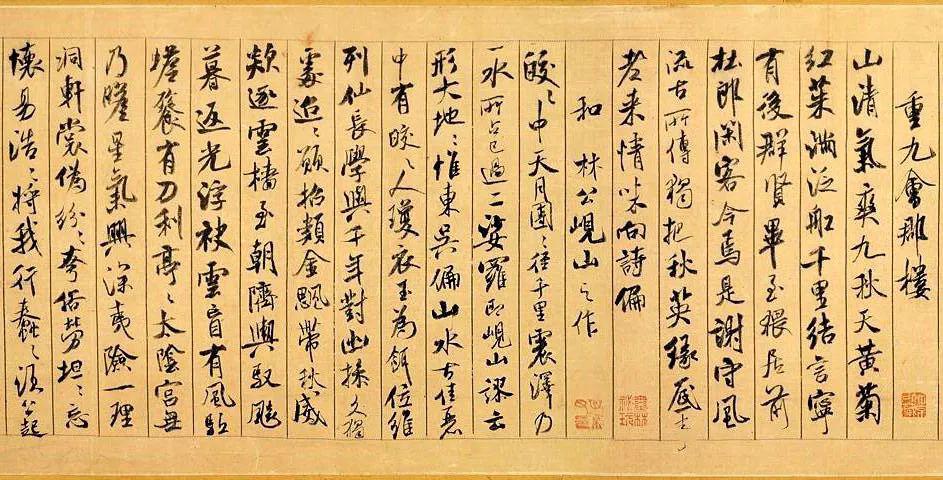 重九會郡樓
山清氣爽九秋天黃菊
紅茱滿泛船千里結言寧
有後群賢畢至猥居前
杜郎閑客今焉是謝守風
流古所傳獨把秋英緣底事
老來情味向詩偏
和林公峴山之作
皎〻中天月團〻徑千里震澤乃
一水所占已過二娑羅即峴山謬云
形大地〻惟東吳偏山水古佳麗
中有皎〻人瓊衣玉為餌位維
列仙長學與千年對幽操久獨
處迢〻願招類金飊帶秋威
欻逐雲檣至朝隮輿馭飈
暮返光浮袂雲盲有風駟
蟾餮有刀利亭〻太陰宮無
乃瞻星氣興深夷險一理
洞軒裳偽紛〻夸俗勞坦〻忘
懷易浩〻將我行蠢〻須公起